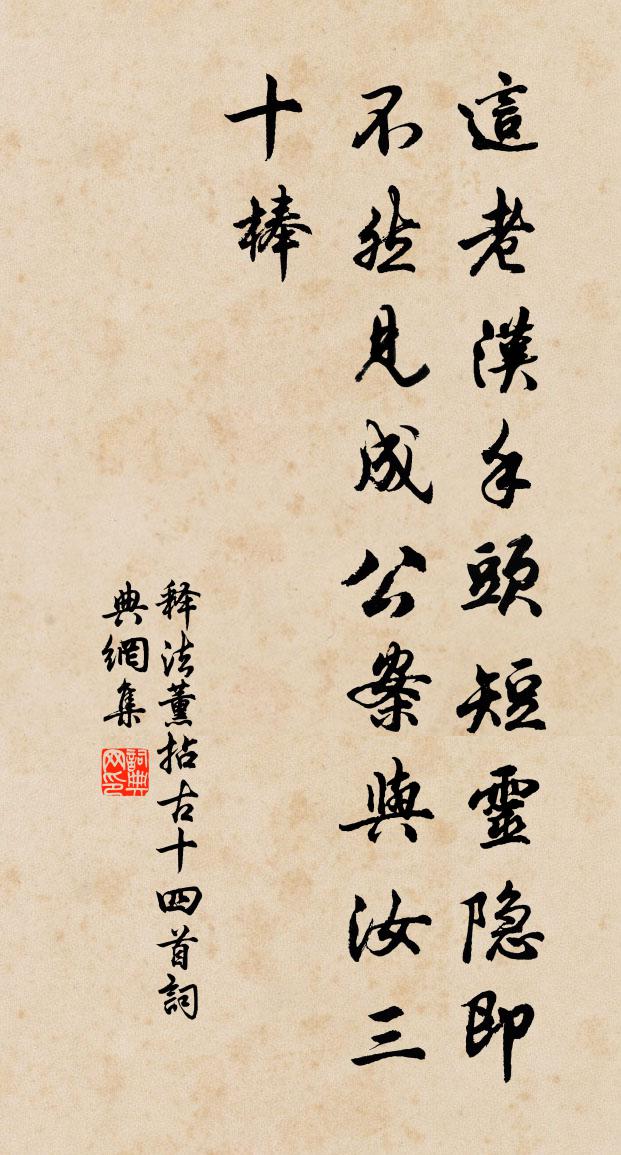 這老漢手頭短靈隐即
不然見成公案與汝三
十棒
释法薰拈古十四首詞
典網集
詞典
网印